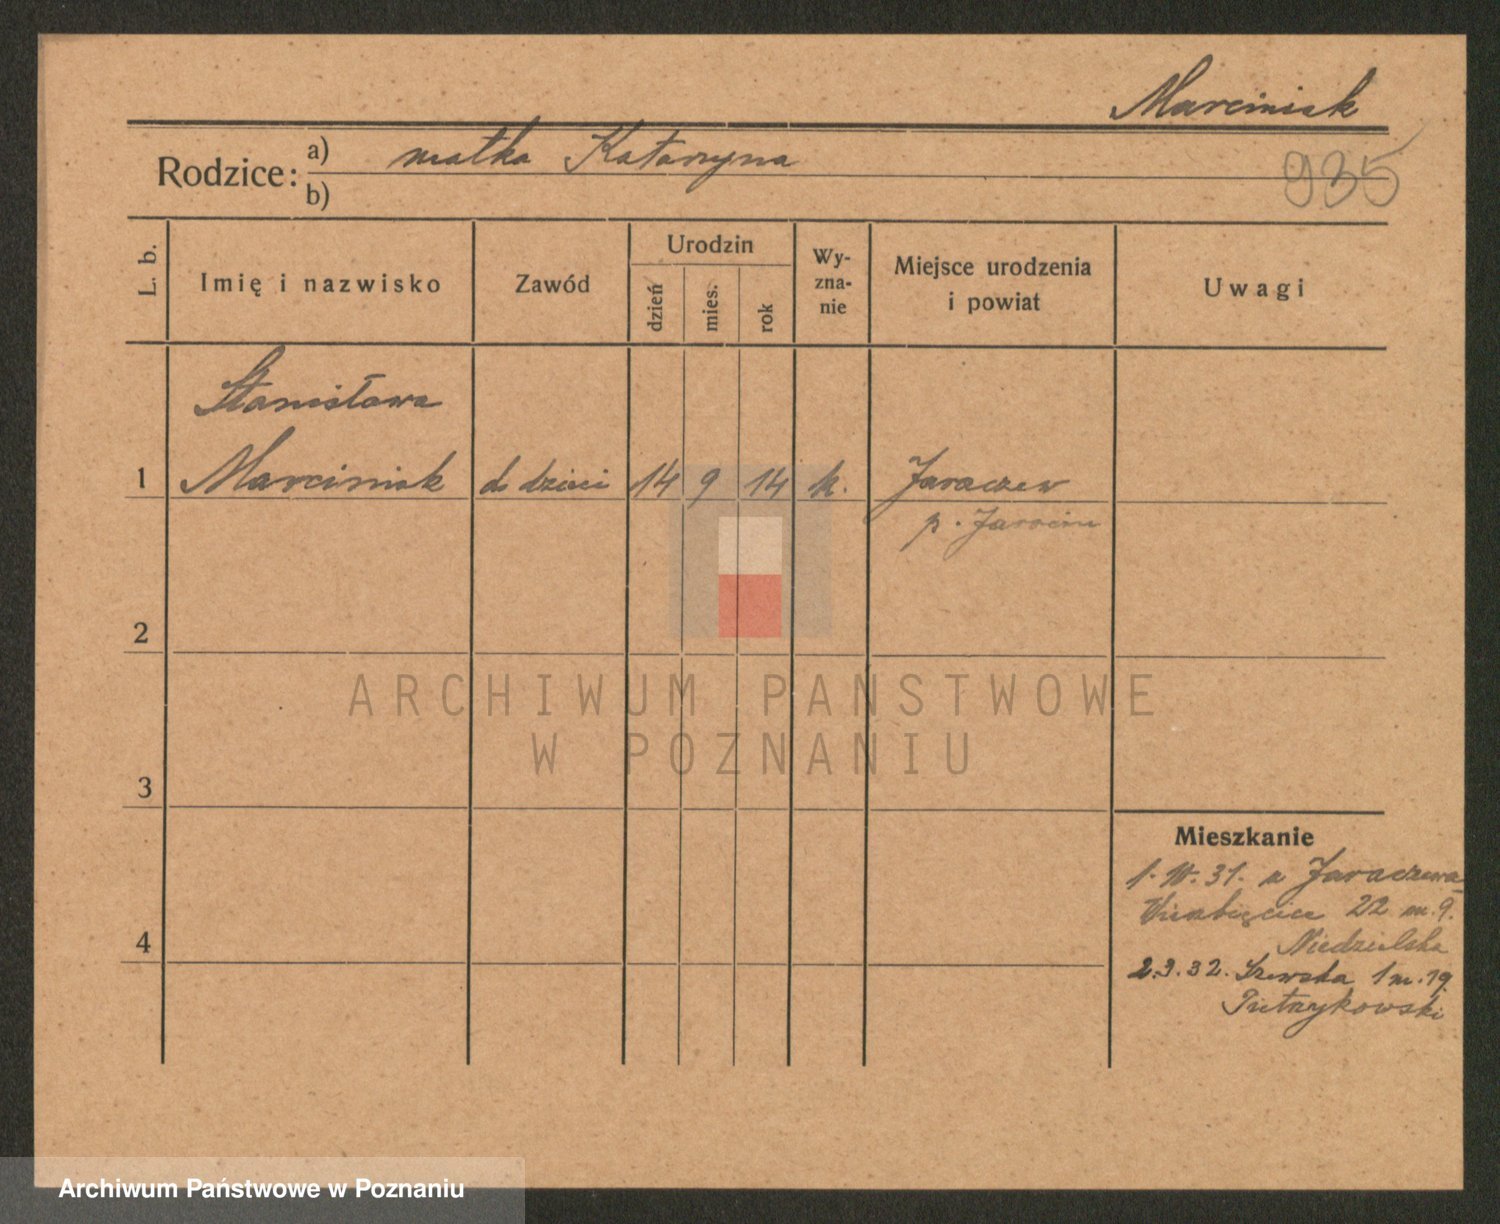 Marciniak
Rodzice:
a) matka Katarzyna
b)
935
L. b.
Imię i nazwisko
Zawód
Urodzin
dzień
mies.
rok
Wy-
zna-
nie
Miejsce urodzenia
i powiat
Uwagi
Stanisława
1 Marciniak do dzieci 14 9 14 k. Jaraczew
p. Jarocin
2
ARCHIWUM PAŃSTWOWE
W POZNANIU
3
Mieszkanie
31. z Jaraczewa
Wierzbięcice 22 m. 9.
Niedzielska
4
2.3.32. Szewska 1 m. 19.
Pietrzykowski
Archiwum Państwowe w Poznaniu